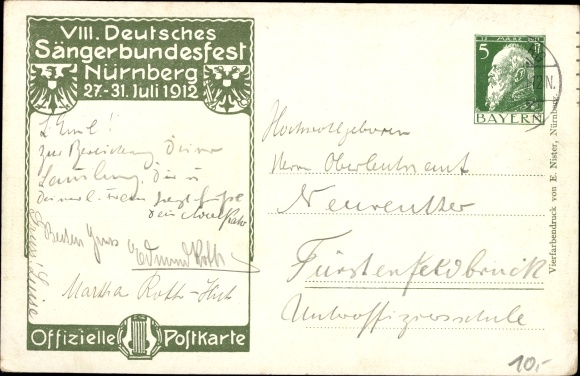 VIII. Deutsches
Sängerbundesfest
Nürnberg
27-31. Juli 1912
L. Emil!
zur Bereicherung Deiner
Sammlung, Dir u
Deiner l. Frau herzl. Grüße
Dein
Besten Gruss Edmund Roth
Martha Roth-
Luise
Offizielle Postkarte
5
BAYERN
12 N.
Hochwohlgeboren
Herrn Oberleutnant
Neureuther
Fürstenfeldbruck
Unteroffiziersschule
Vierfarbendruck von E. Nister, Nürnberg.
10,-